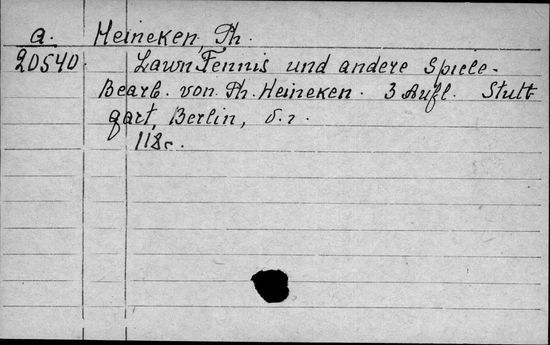 a. Heineken, Th.
20540. Lawn Tennis und andere Spiele.
Bearb. von Th. Heineken. 3 Aufl. Stutt
gart, Berlin, б.г.
118с.